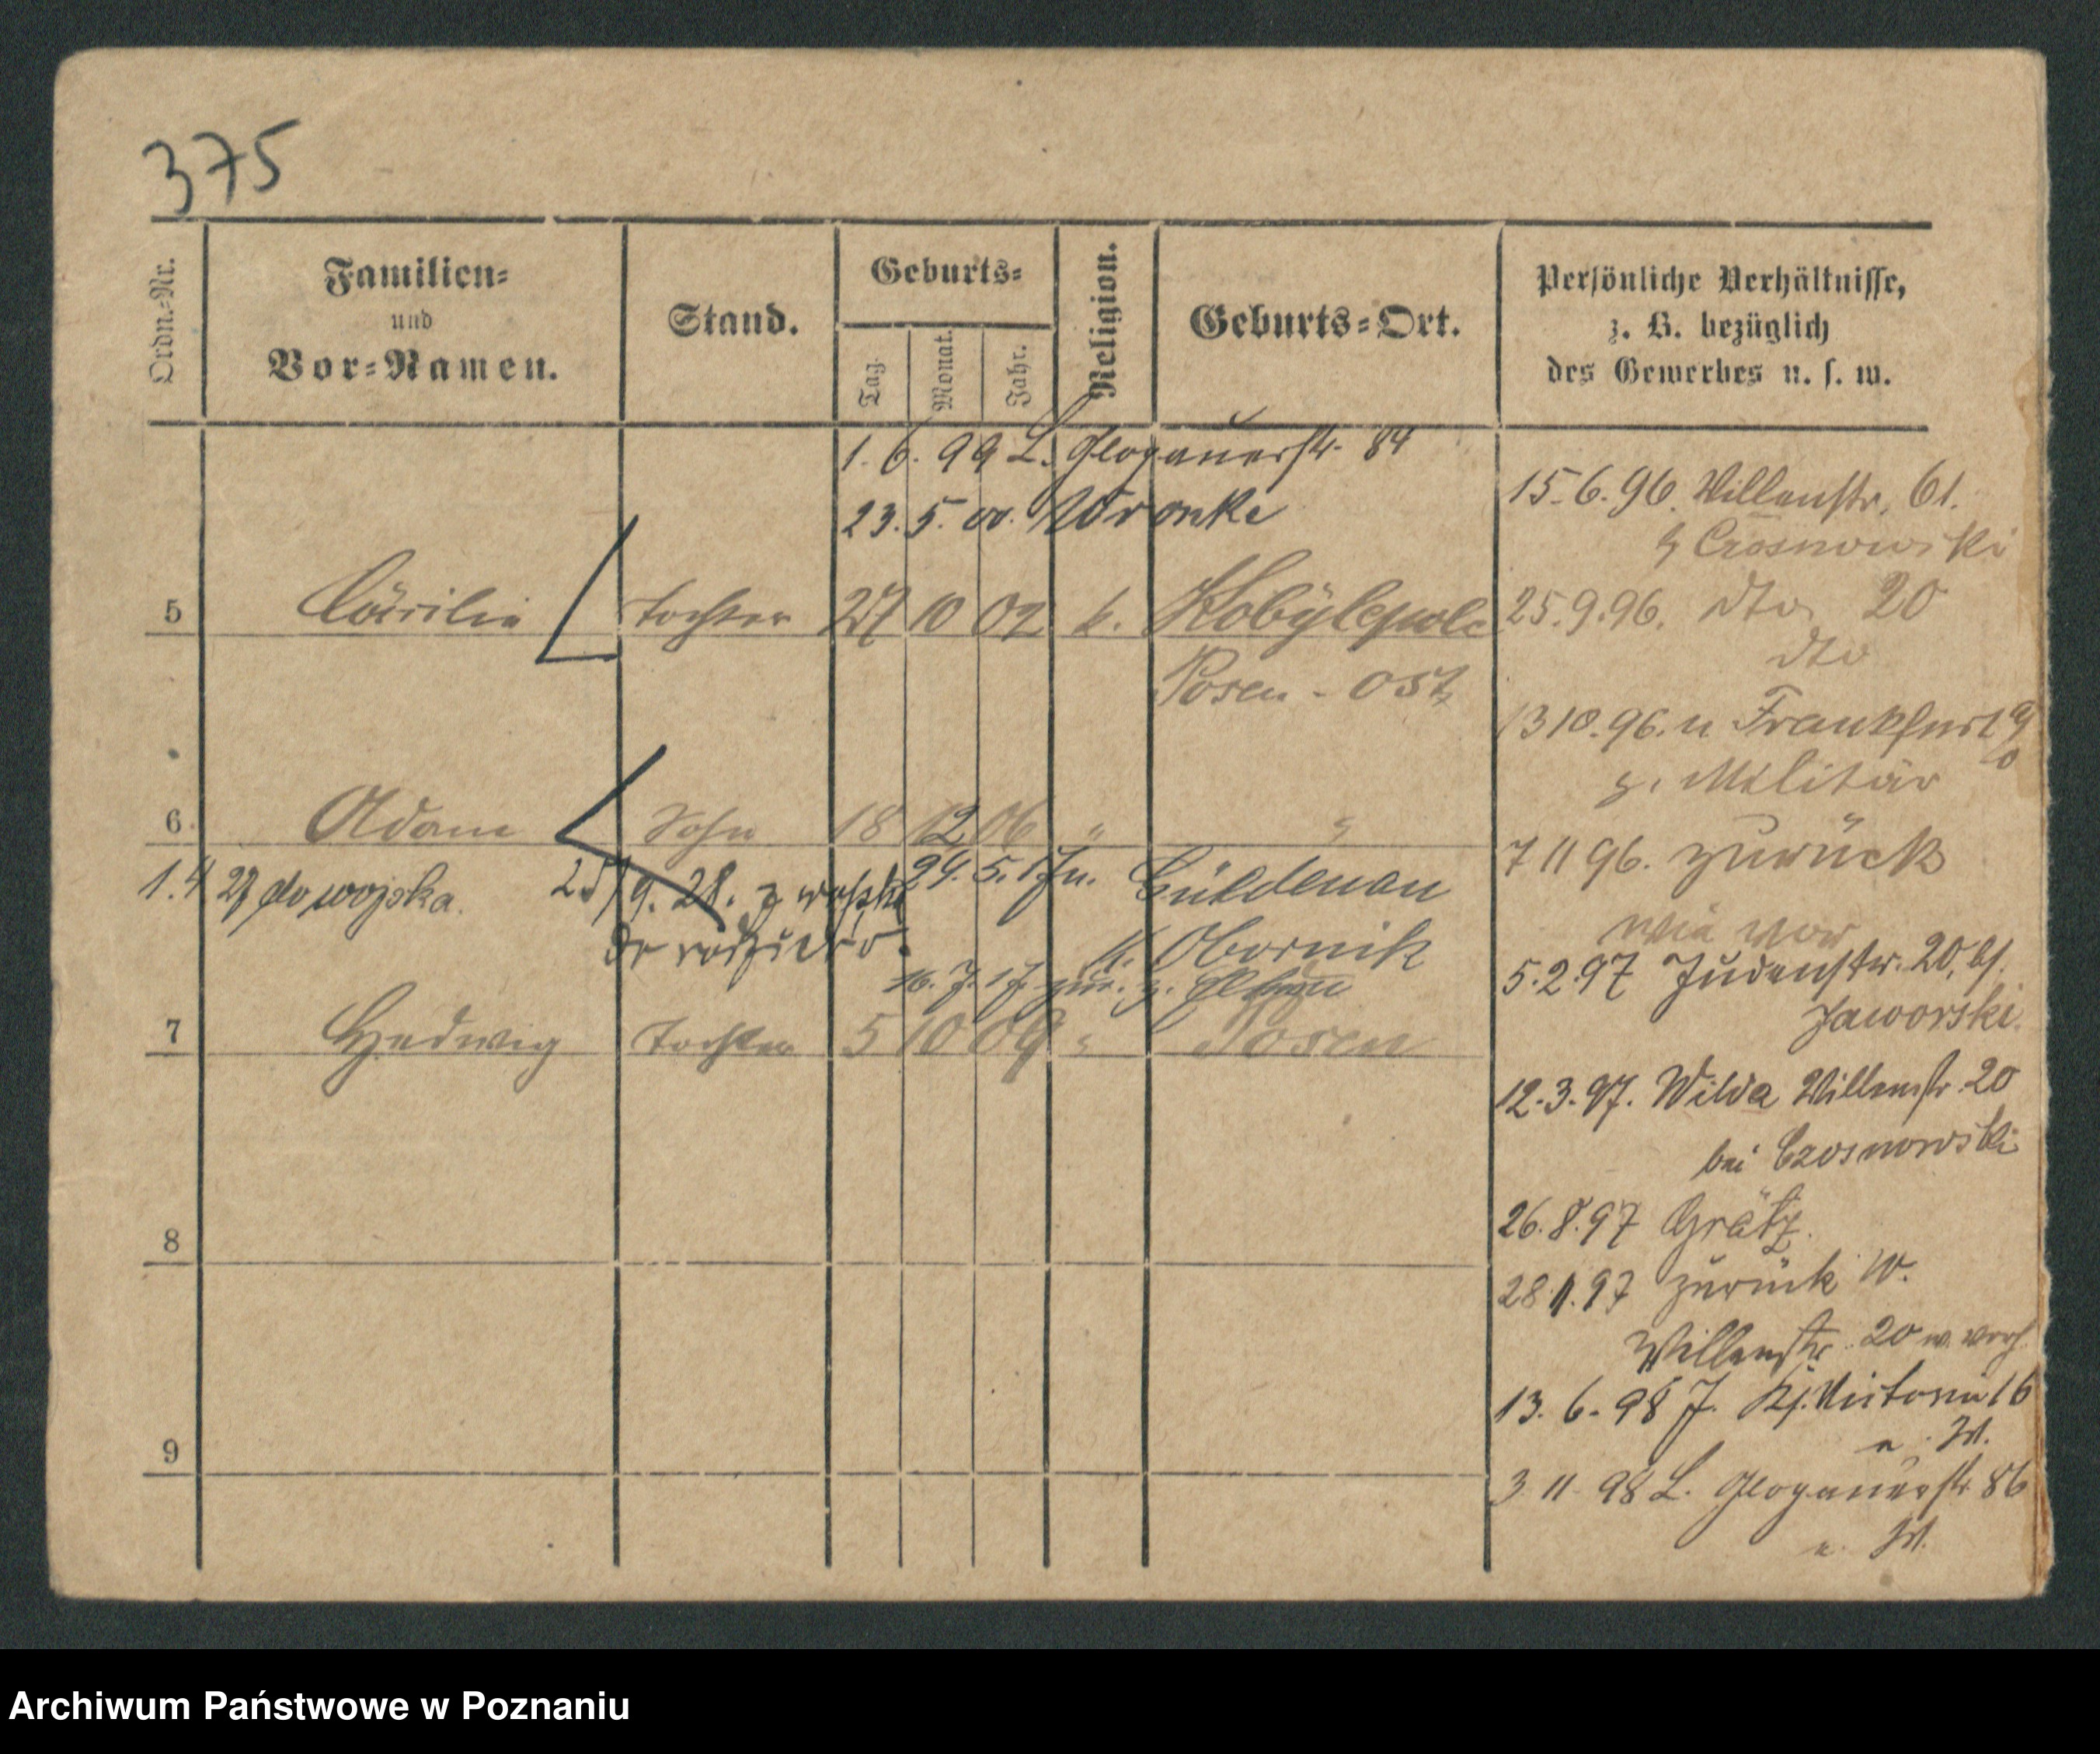 375
Ordn.-Nr.
Familien-
und
Vor-Namen.
Stand.
Geburts-
Tag.
Monat.
Jahr.
Religion.
Geburts-Ort.
Persönliche Verhältnisse,
z. B. bezüglich
des Gewerbes u. s. w.
1. 6. 99 L. Glogauerstr. 84
23. 5. 00. Wronke
5 Cäcilie Tochter 27 10 02 k. Kobylepole
Posen - Ost
6 Adam Sohn 18 12 06 " "
1.4 27 do wojska. 25/9. 28. z wojska
do rodziców.
24. 5. 17 n. Güldenau
K. Obornik
16. 7. 17 zur. z.
7 Hedwig Tochter 5 10 09 " Posen
8
9
15.6.96. Willenstr. 61.
b Czosnowski
25.9.96. dto 20
dto
13 10.96. n Frankfurt a/O
z. Militär
7 11 96. zurück
wie vor
5.2.97 Judenstr. 20, bf.
Jaworski.
12.3.97. Wilda Willenstr. 20
bei Czosnowski
26.8.97 Grätz.
28.1.97 zurück W.
Willenstr. 20
13. 6. 98 J. Victoria 16
3 11 98 L. Glogauerstr. 86
Archiwum Państwowe w Poznaniu